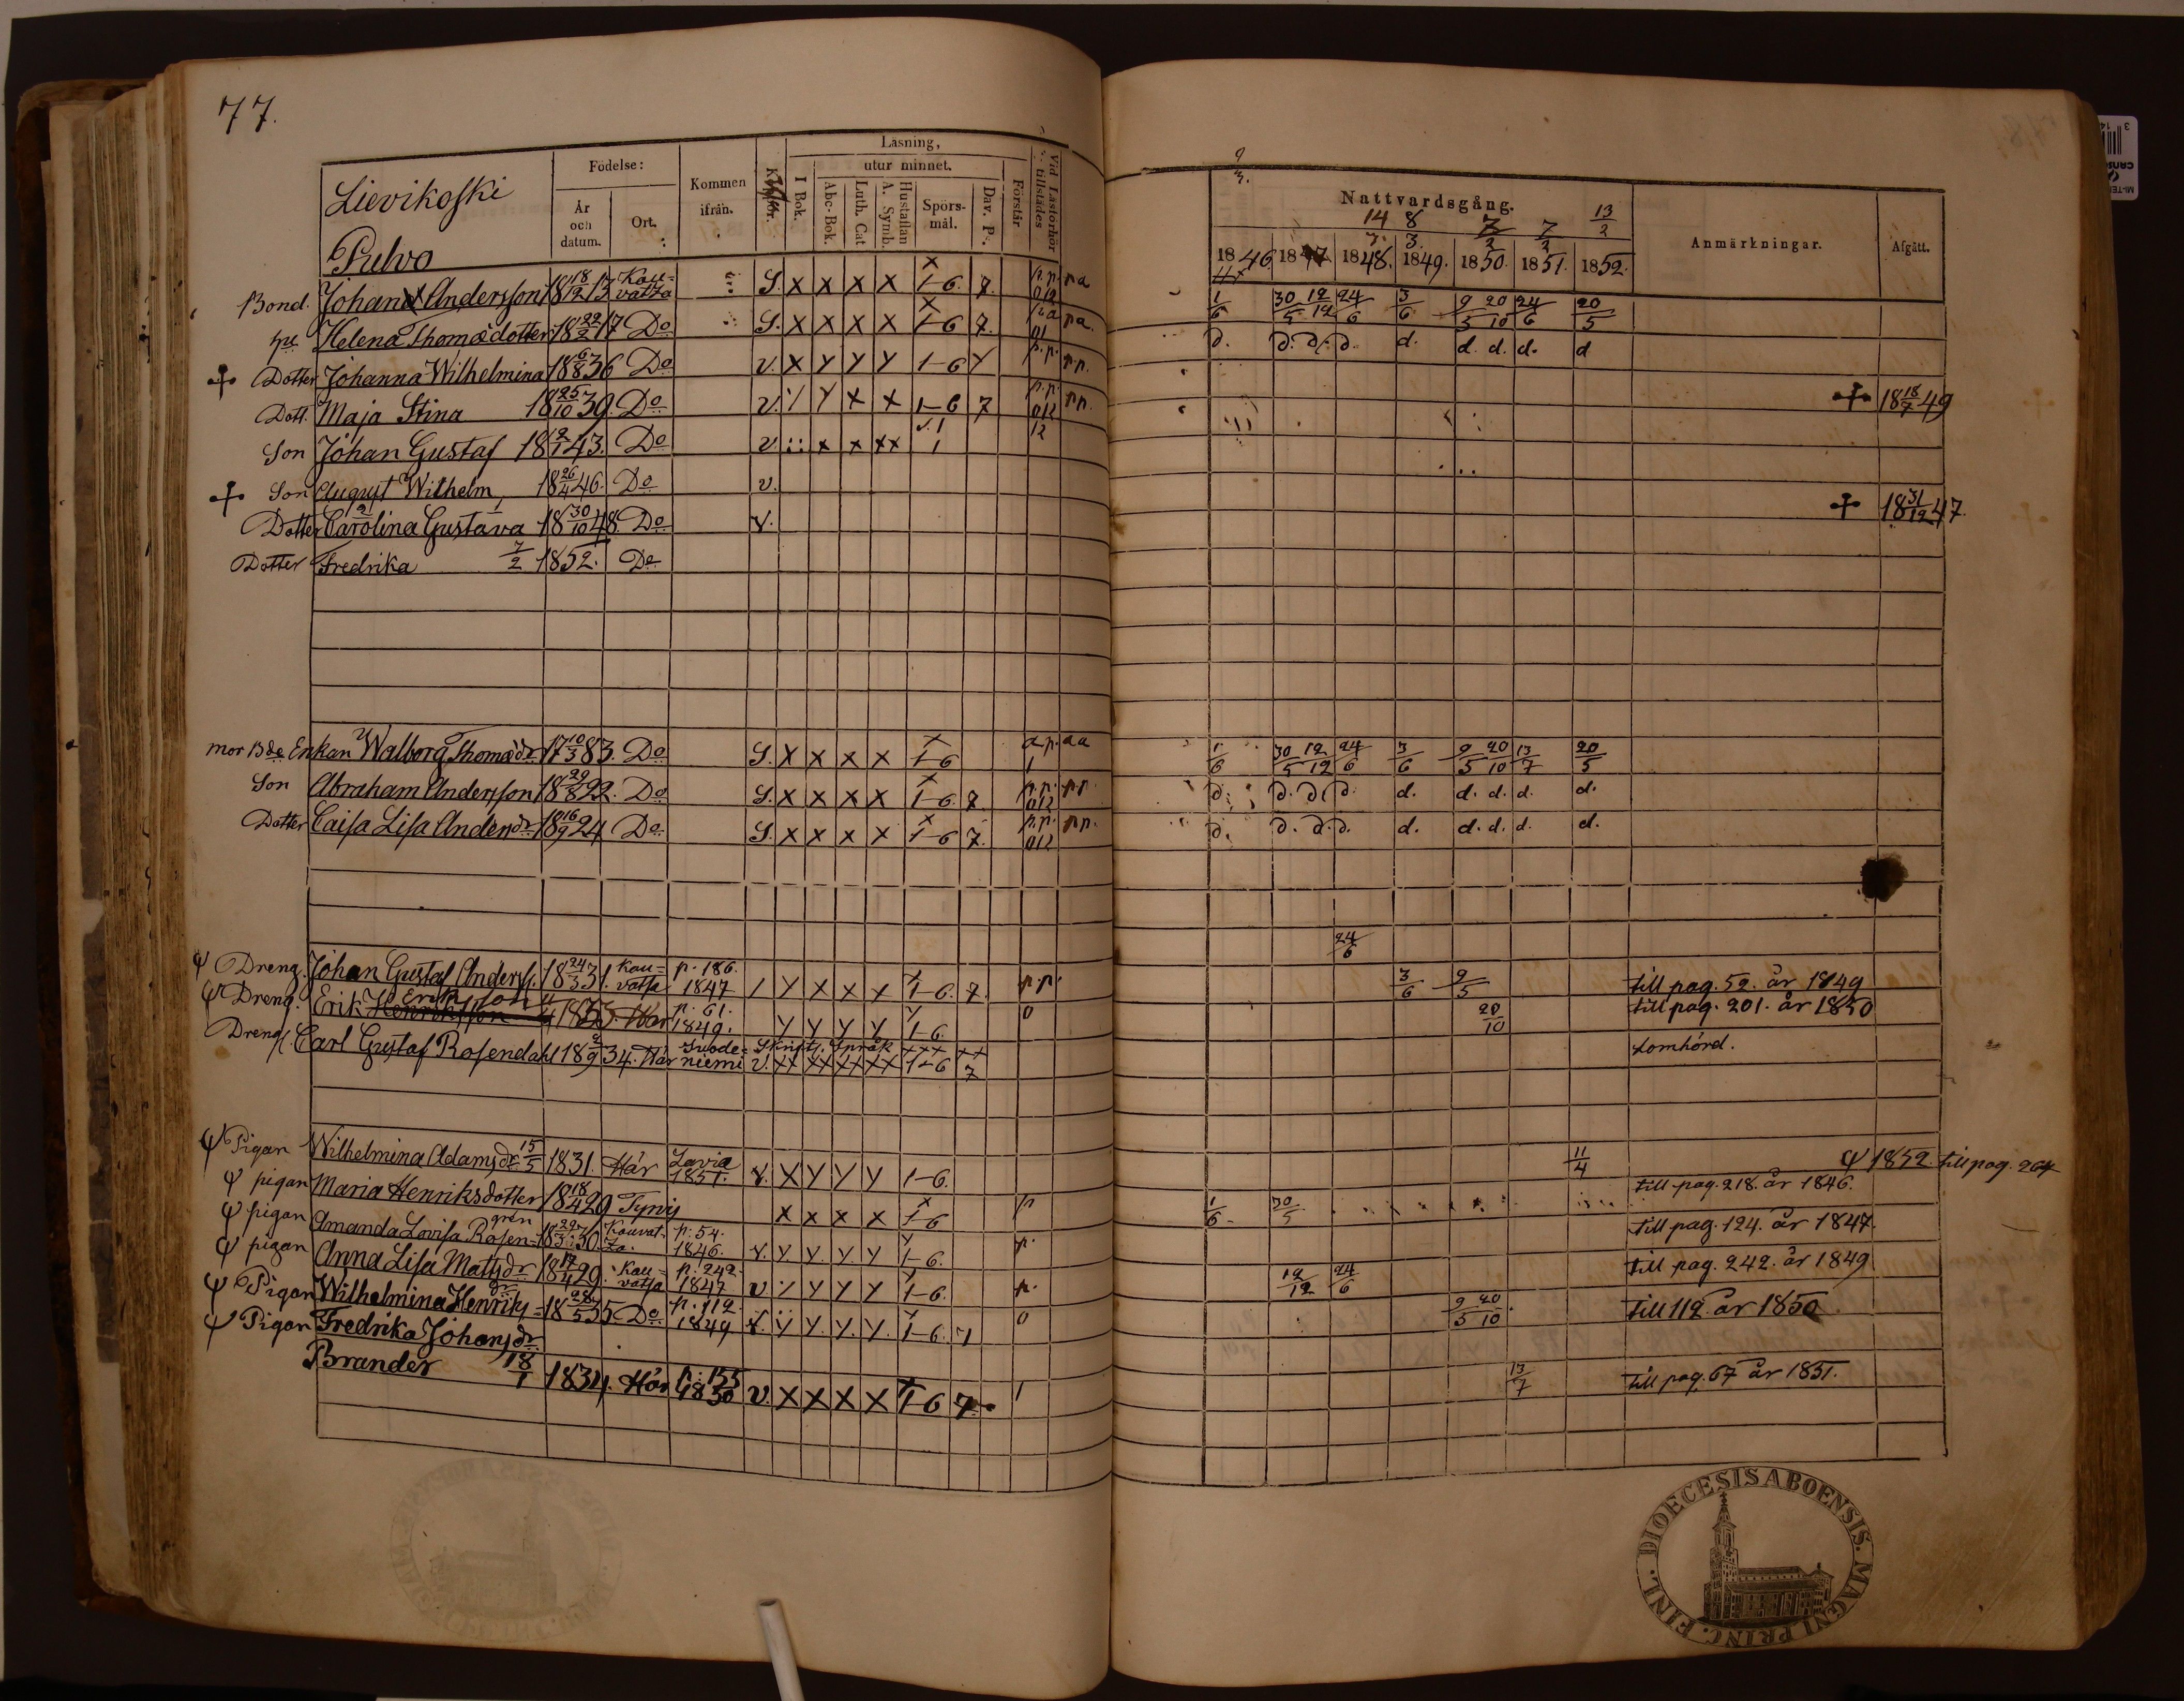 77.
Lievikoski
Pulvo
Födelse:
År och datum.
Ort.
Kommen ifrån.
Läsning,
utur minnet.
I Bok.
Abc-Bok.
Luth. Cat
A. Symb. Hustaflan
Spörs-mål.
Dav. Ps.
Förstår
Vid Läsförhör tillstädes
Nattvardsgång.
14 8 7/2 7/2 13/2
1846. 1847 1848. 1849. 1850. 1851. 1852.
Anmärkningar.
Afgått.
Bond. Johan Andersson 18 18/12 13 Kau-vatsa S. x x x x 1-6. 7. p.p. pa 1/6 30/5 12/12 24/6 3/6 9/5 20/10 24/6 20/5
Helena Thomædotter 18 22/2 17 Do S. x x x x 1-6 7. pa pa. d. d. d. d. d. d. d. d. d
+ Dotter Johanna Wilhelmina 18 6/8 36 Do v. x y y y 1-6 y p.p. p.p. + 18 18/7 49
Dott. Maja Stina 18 25/10 39. Do v. y x x 1-6 7 p.p. pp.
Son Johan Gustaf 18 2/1 43. Do v x x xx 1 12
+ Son August Wilhelm 18 26/4 46. Do v. + 18 31/12 47.
Dotter Carolina Gustava 18 30/10 48. Do v.
Dotter Fredrika 7/2 1852. Do
mor Bde Enkan Walborg Thomædr 17 10/3 83. Do S. x x x x 1-6 a.p. aa 1/6 30/5 12/12 24/6 3/6 9/5 20/10 13/7 20/5
Son Abraham Andersson 18 29/8 22. Do S. x x x x 1-6. 7. p.p. pp. d. d. d. d. d. d. d. d. d.
Dotter Caisa Lisa Andersdr 18 16/9 24 Do S. x x x x 1-6 7. p.p. pp. d. d. d. d. d. d. d. d. d.
24/6
Dreng. Johan Gustaf Anderss. 18 24/3 31. Kau-vatsa p. 186. 1847 y x x x 1-6. 7. p.p. 3/6 9/5 till pag. 52. år 1849
Dreng. Erik Henriksson Eriksson p. 61. 1849. y y y y 1-6. 0 20/10 till pag. 201. år 1850
Dreng. Carl Gustaf Rosendahl 18 2/9 34. Här Suode-niemi Skrift. Språk v. xx xx xx xx 1-6 7 tomhörd.
Pigan Wilhelmina Adamsdr 15/5 1831. Här Lavia 1851. v. x y y y 1-6. 11/4 1852. till pag. 264
pigan Maria Henriksdotter 18 18/4 29 Tyrvis x x x x 1-6 p 1/6 30/5 till pag. 218. år 1846.
pigan Amanda Lovisa Rosen-gren 30. Kauvat-za. p. 54. 1846. v. y. y. y. y 1-6. p. till pag. 124. år 1847.
pigan Anna Lisa Mattsdr 18 17/4 29. Kau-vatsa p. 242. 1847 v y y y y 1-6. p. 12/12 24/6 till pag. 242. år 1849
Pigan Wilhelmina Henriks-dr 18 28/5 35 Do p. 112. 1849 v. y y. y. y. 1-6. 7 0 9/5 20/10. till 112. år 1850
Pigan Fredrika Johansdr
Brander 18/1 1834. Här p. 155 1850 v. x x x x 1-6 7. 1 13/7 till pag. 67 år 1851.
DIOECESIS ABOENSIS. MAGNI PRINC. FINL.